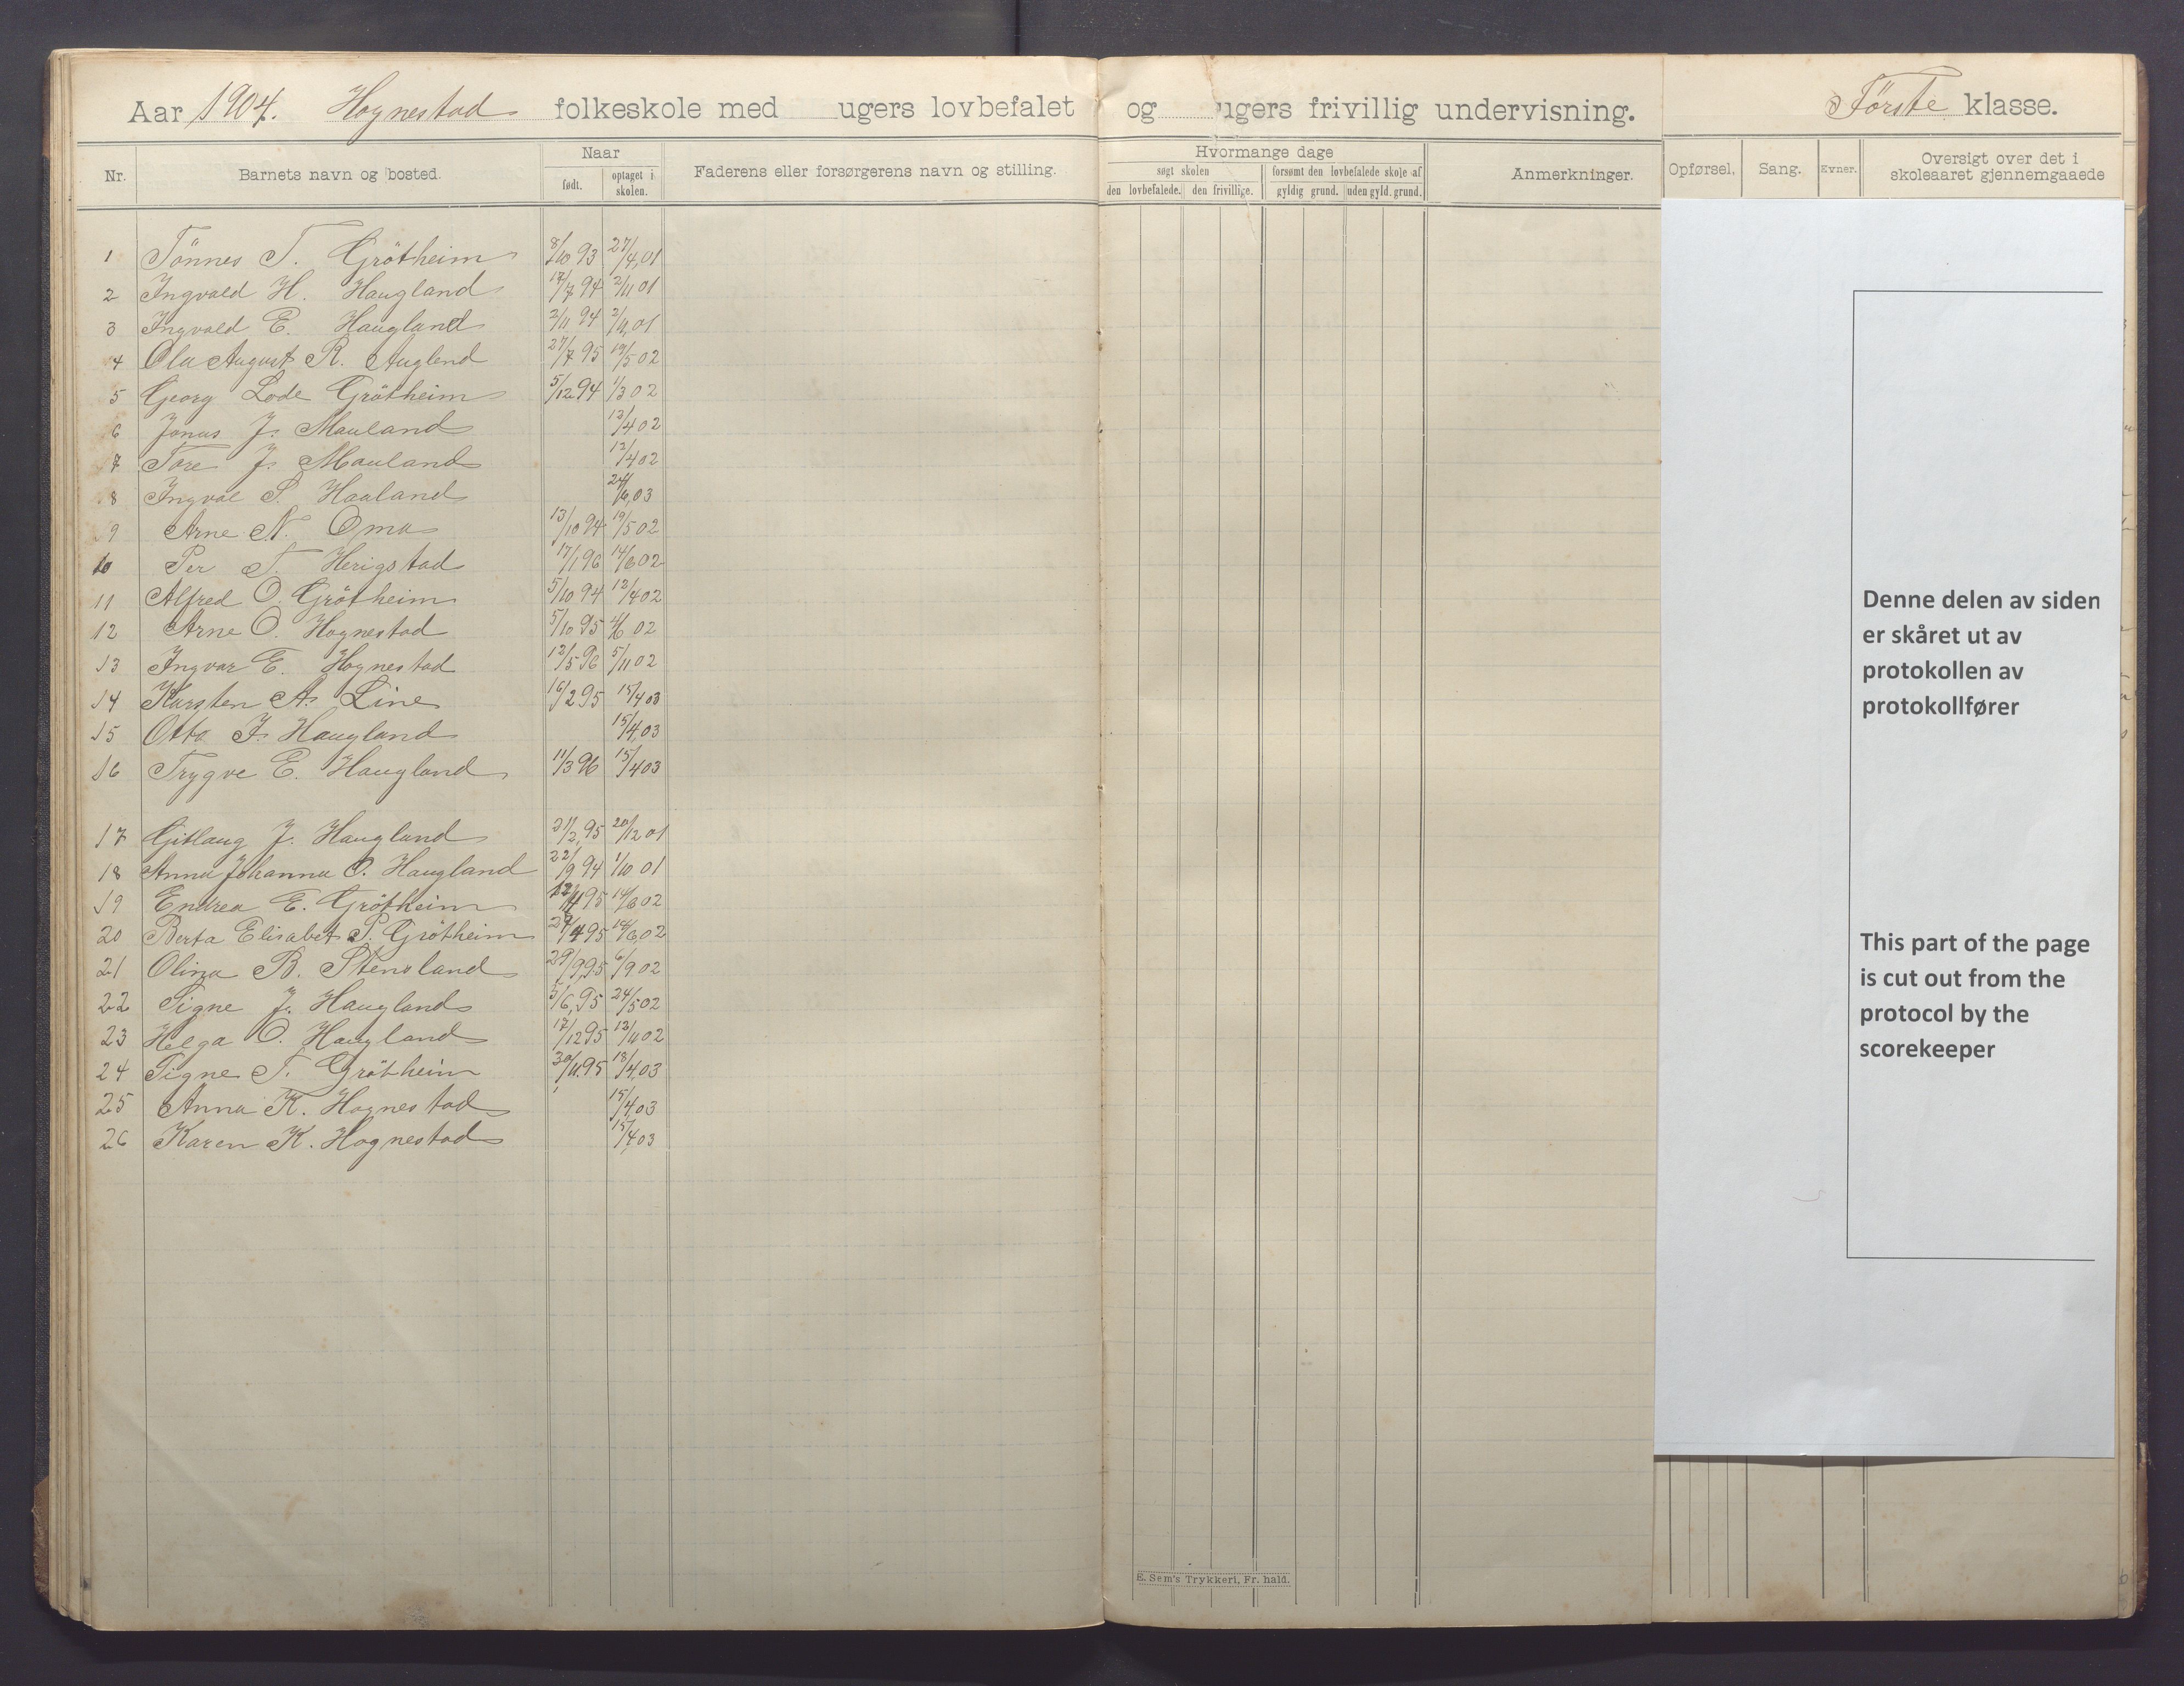 Aar 1904. Hognestad folkeskole med ugers lovbefalet og ugers frivillig undervisning. Første klasse.
Nr. Barnets navn og bosted. Naar født. optaget i skolen. Faderens eller forsørgerens navn og stilling. Hvormange dage søgt skolen den lovbefalede. den frivillige. forsømt den lovbefalede skole af gyldig grund. uden gyld. grund. Anmerkninger. Opførsel. Sang. Evner. Oversigt over det i skoleaaret gjennemgaaede
1 Tönnes T. Grötheim 8/10 93 27/4,01
2 Ingvald H. Haugland 17/7 94 2/11 01
3 Ingvald E. Haugland 2/11 94 2/11,01
4 Ola August R. Auglend 27/7 95 19/5 02
5 Georg Lode Grötheim 5/12 94 1/3 02
6 Jonas J. Mauland 12/4 02
7 Tore J. Mauland 12/4 02
8 Ingval S. Haaland 24/6,03
9 Arne N. Oma 13/10 94 19/5 02
10 Per T. Herigstad 17/1 96 14/6 02
11 Alfred O. Grötheim 5/10 94 12/4 02
12 Arne O. Hognestad 5/10 95 4/6 02
13 Ingvar E. Hognestad 12/5 96 5/11 02
14 Karsten A. Line 16/2 95 15/4 03
15 Otto J. Haugland 15/4,03
16 Trygve E. Haugland 11/3 96 15/4 03
17 Gitlaug J. Haugland 21/2,95 20/12 01
18 Anna Johanna O. Haugland 22/9 94 1/10 01
19 Endrea E. Grötheim 95 14/6 02
20 Berta Elisabet P. Grötheim 29/4 95 14/6,02
21 Olina B. Stensland 29/9,95 6/9 02
22 Signe J. Haugland 5/6,95 24/5 02
23 Helga O. Haugland 17/12 95 12/4 02
24 Signe T. Grötheim 30/11.95 18/4,03
25 Anna K. Hognestad 15/4,03
26 Karen K. Hognestad 15/4,03
Denne delen av siden
er skåret ut av
protokollen av
protokollfører
This part of the page
is cut out from the
protocol by the
scorekeeper
E. Sem's Trykkeri, Fr. hald.